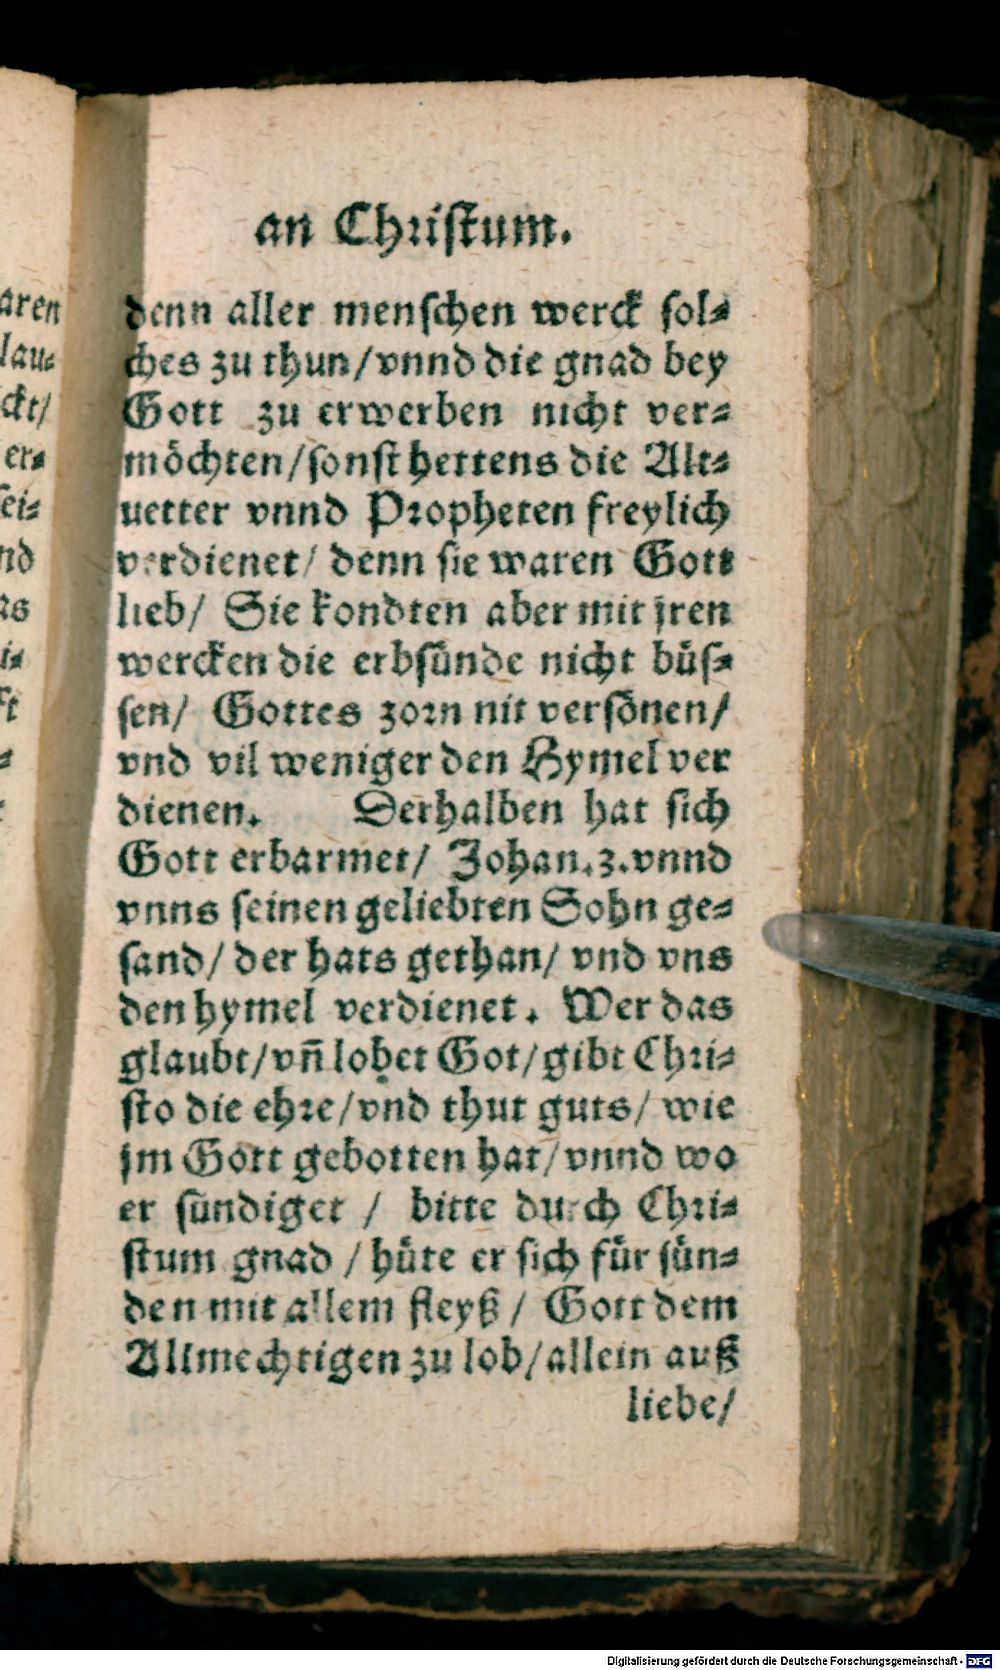 an Christum.
denn aller menschen werck sol⸗
ches zu thun/vnnd die gnad bey
Gott zu erwerben nicht ver⸗
möchten/sonst hettens die Alt⸗
uetter vnnd Propheten freylich
verdienet/ denn sie waren Gott
lieb/ Sie kondten aber mit jren
wercken die erbsünde nicht büs⸗
sen/ Gottes zorn nit versönen/
vnd vil weniger den Hymel ver
dienen. Derhalben hat sich
Gott erbarmet/ Johan.3.vnnd
vnns seinen geliebten Sohn ge⸗
sand/ der hats gethan/ vnd vns
den hymel verdienet. Wer das
glaubt/vñ lobet Got/gibt Chri⸗
sto die ehre/vnd thut guts/ wie
jm Gott gebotten hat/vnnd wo
er sündiget / bitte durch Chri⸗
stum gnad / hüte er sich für sün⸗
den mit allem fleyß / Gott dem
Allmechtigen zu lob/allein auß
liebe/
aren
lau⸗
ckt/
er⸗
sei⸗
nd
as
i⸗
Digitalisierung gefördert durch die Deutsche Forschungsgemeinschaft - DFG